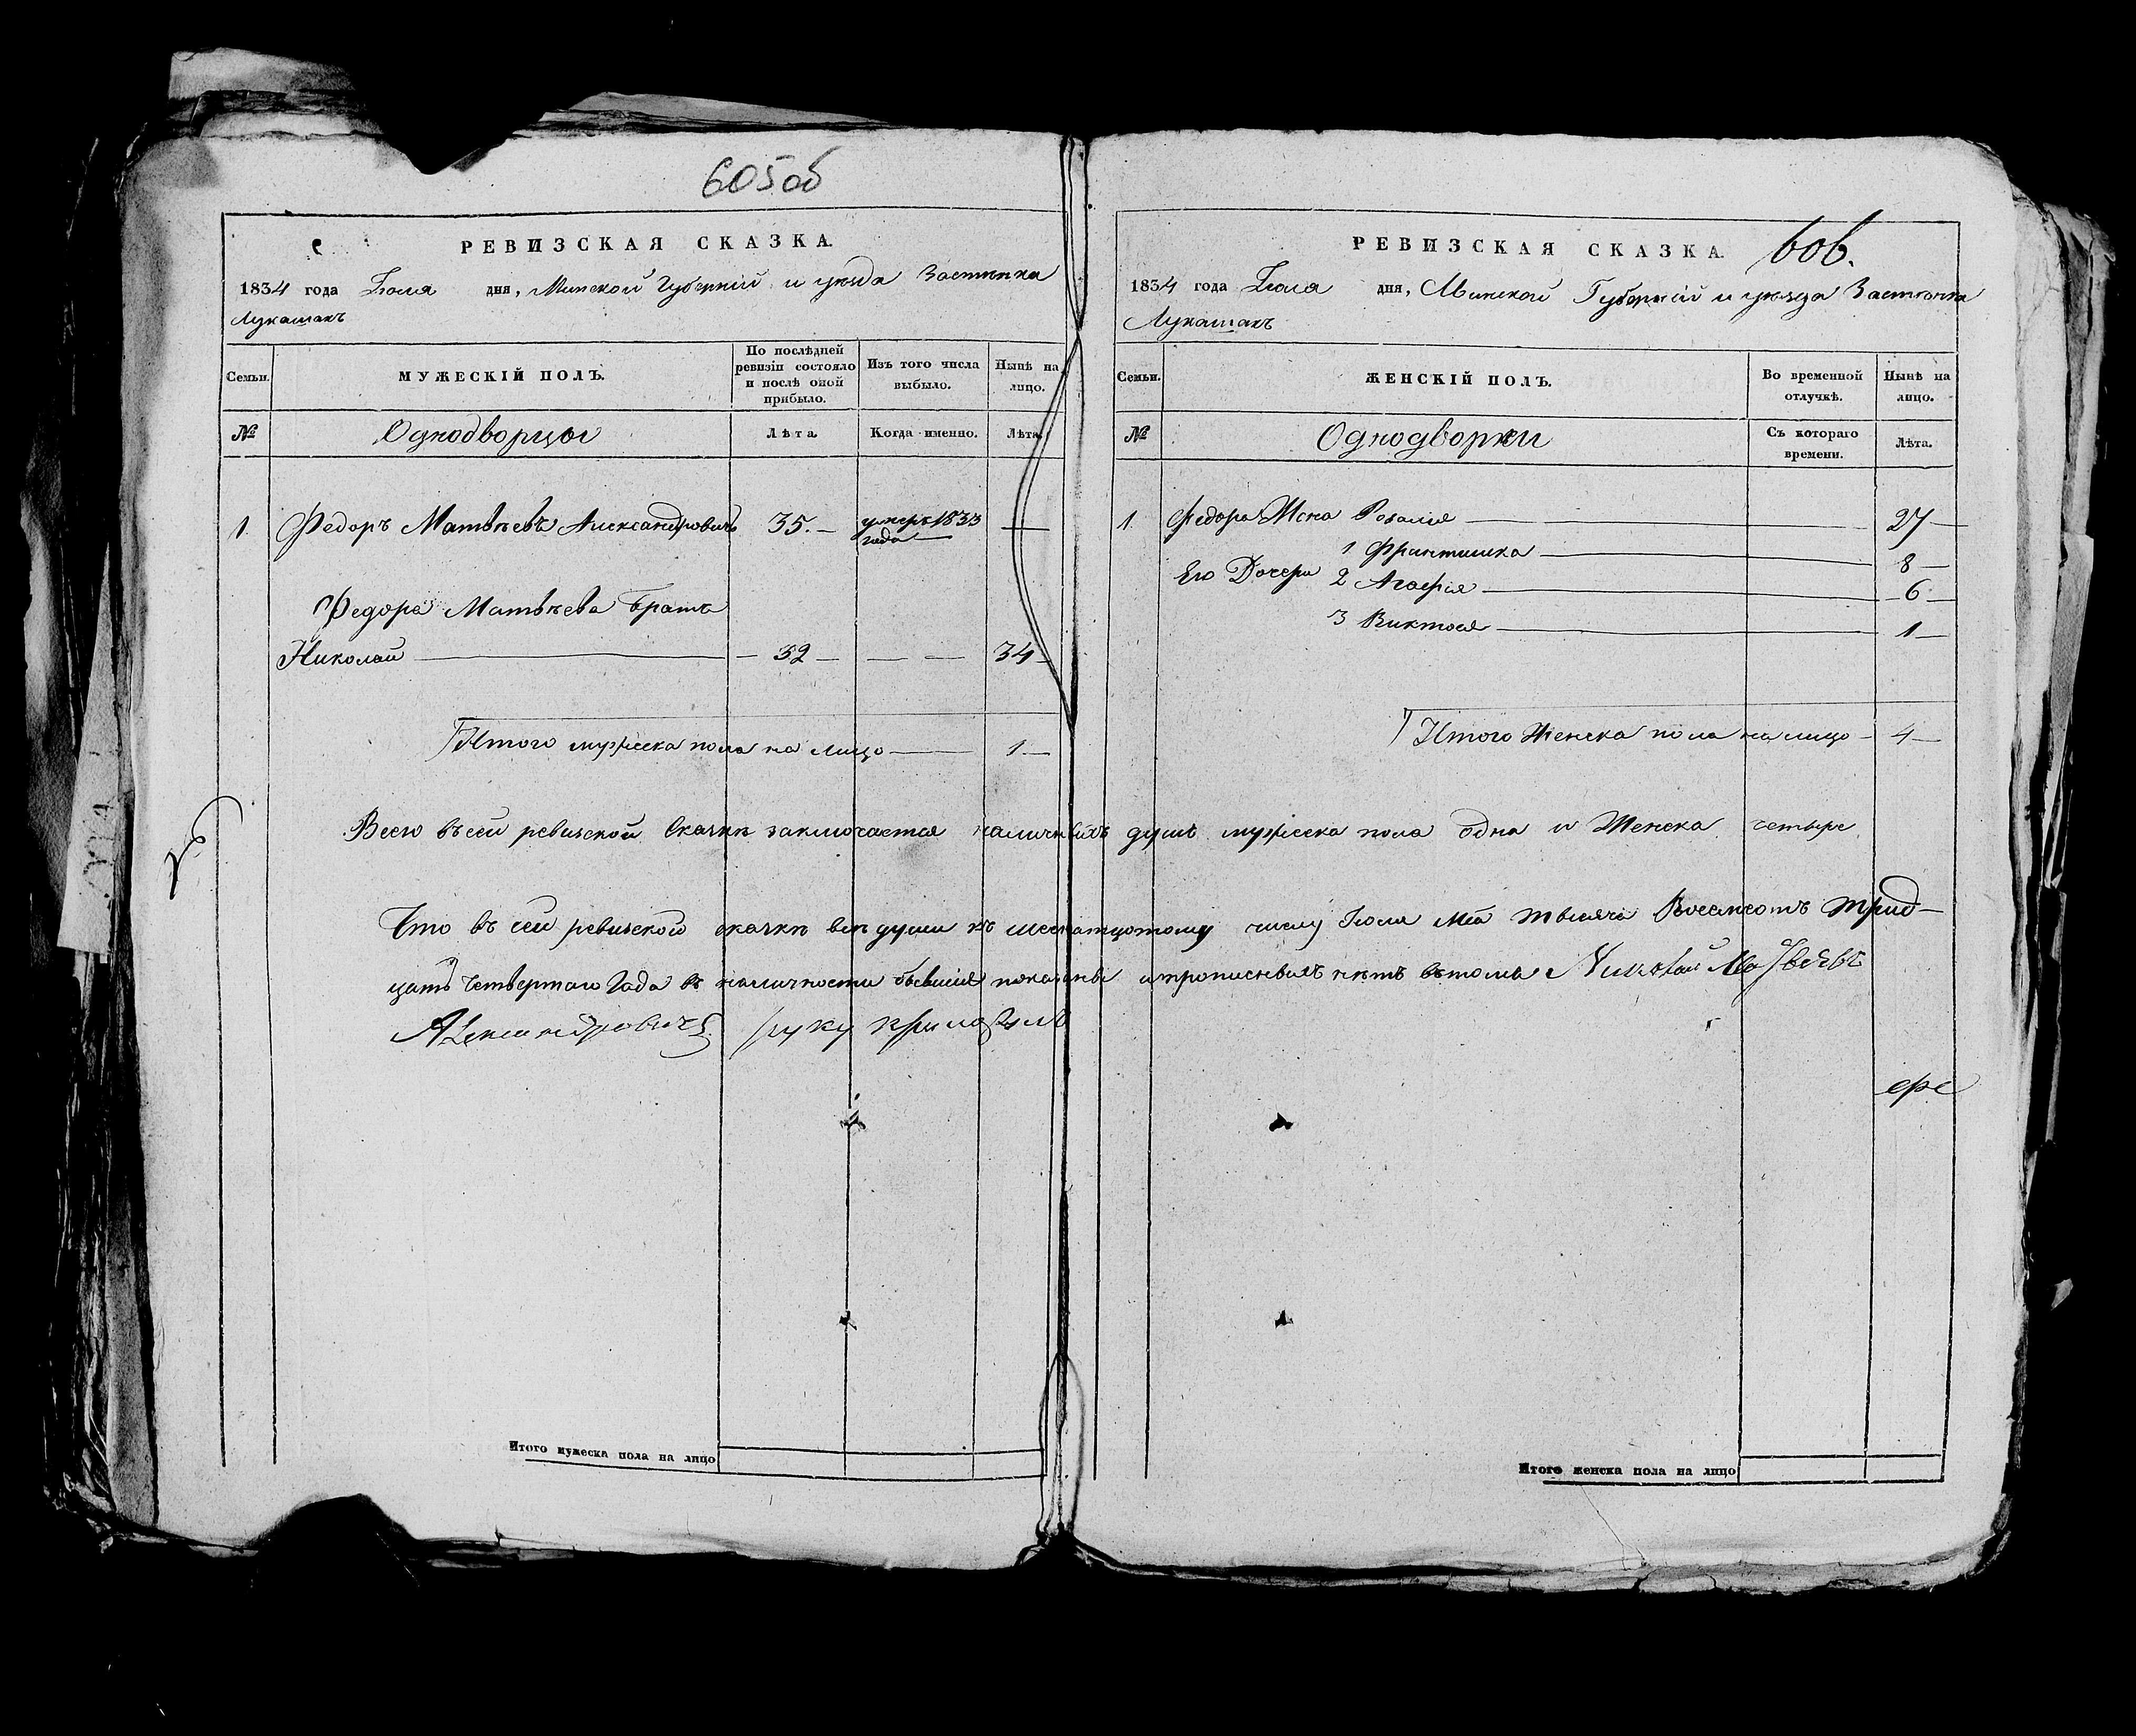 605об
РЕВИЗСКАЯ СКАЗКА.
1834 года Іюля дня, Минской Губерніи и уѣзда Застѣнка
Лукашакъ
Семьи.
МУЖЕСКІЙ ПОЛЪ.
По послѣдней ревизіи состояло и послѣ оной прибыло.
Изъ того числа выбыло.
Нынѣ на лицо.
№
Однодворцы
Лѣта.
Когда именно.
Лѣта.
1. Федоръ Матвѣевъ Александровичъ 35. — умеръ 1833 года —
Федора Матвѣева братъ
Николай — 32 — — — 34 —
Итого мужеска пола на лицо — 1 —
606.
РЕВИЗСКАЯ СКАЗКА.
1834 года Іюля дня, Минской Губерніи и уѣзда Застѣнка
Лукашакъ
Семьи.
ЖЕНСКІЙ ПОЛЪ.
Во временной отлучкѣ.
Нынѣ на лицо.
№
Однодворки
Съ котораго времени.
Лѣта.
1. Федора Жена Розалия — 27 —
1 Франтишка — 8 —
Его Дочери 2 Агафия — 6 —
3 Виктося — 1 —
Итого Женска пола на лицо — 4 —
Всего въ сей ревизской сказкѣ заключается наличныхъ душъ мужеска пола одна и Женска четыре
Что въ сей ревизской сказкѣ всѣ души къ числу Іюля Тысяча Восемсотъ Трид-
цать Четвертаго Года въ наличности бывшие показаны и прописныхъ нѣтъ въ томъ Николай Матвѣевъ
Александровичъ руку приложилъ
Итого мужеска пола на лицо
Итого женска пола на лицо